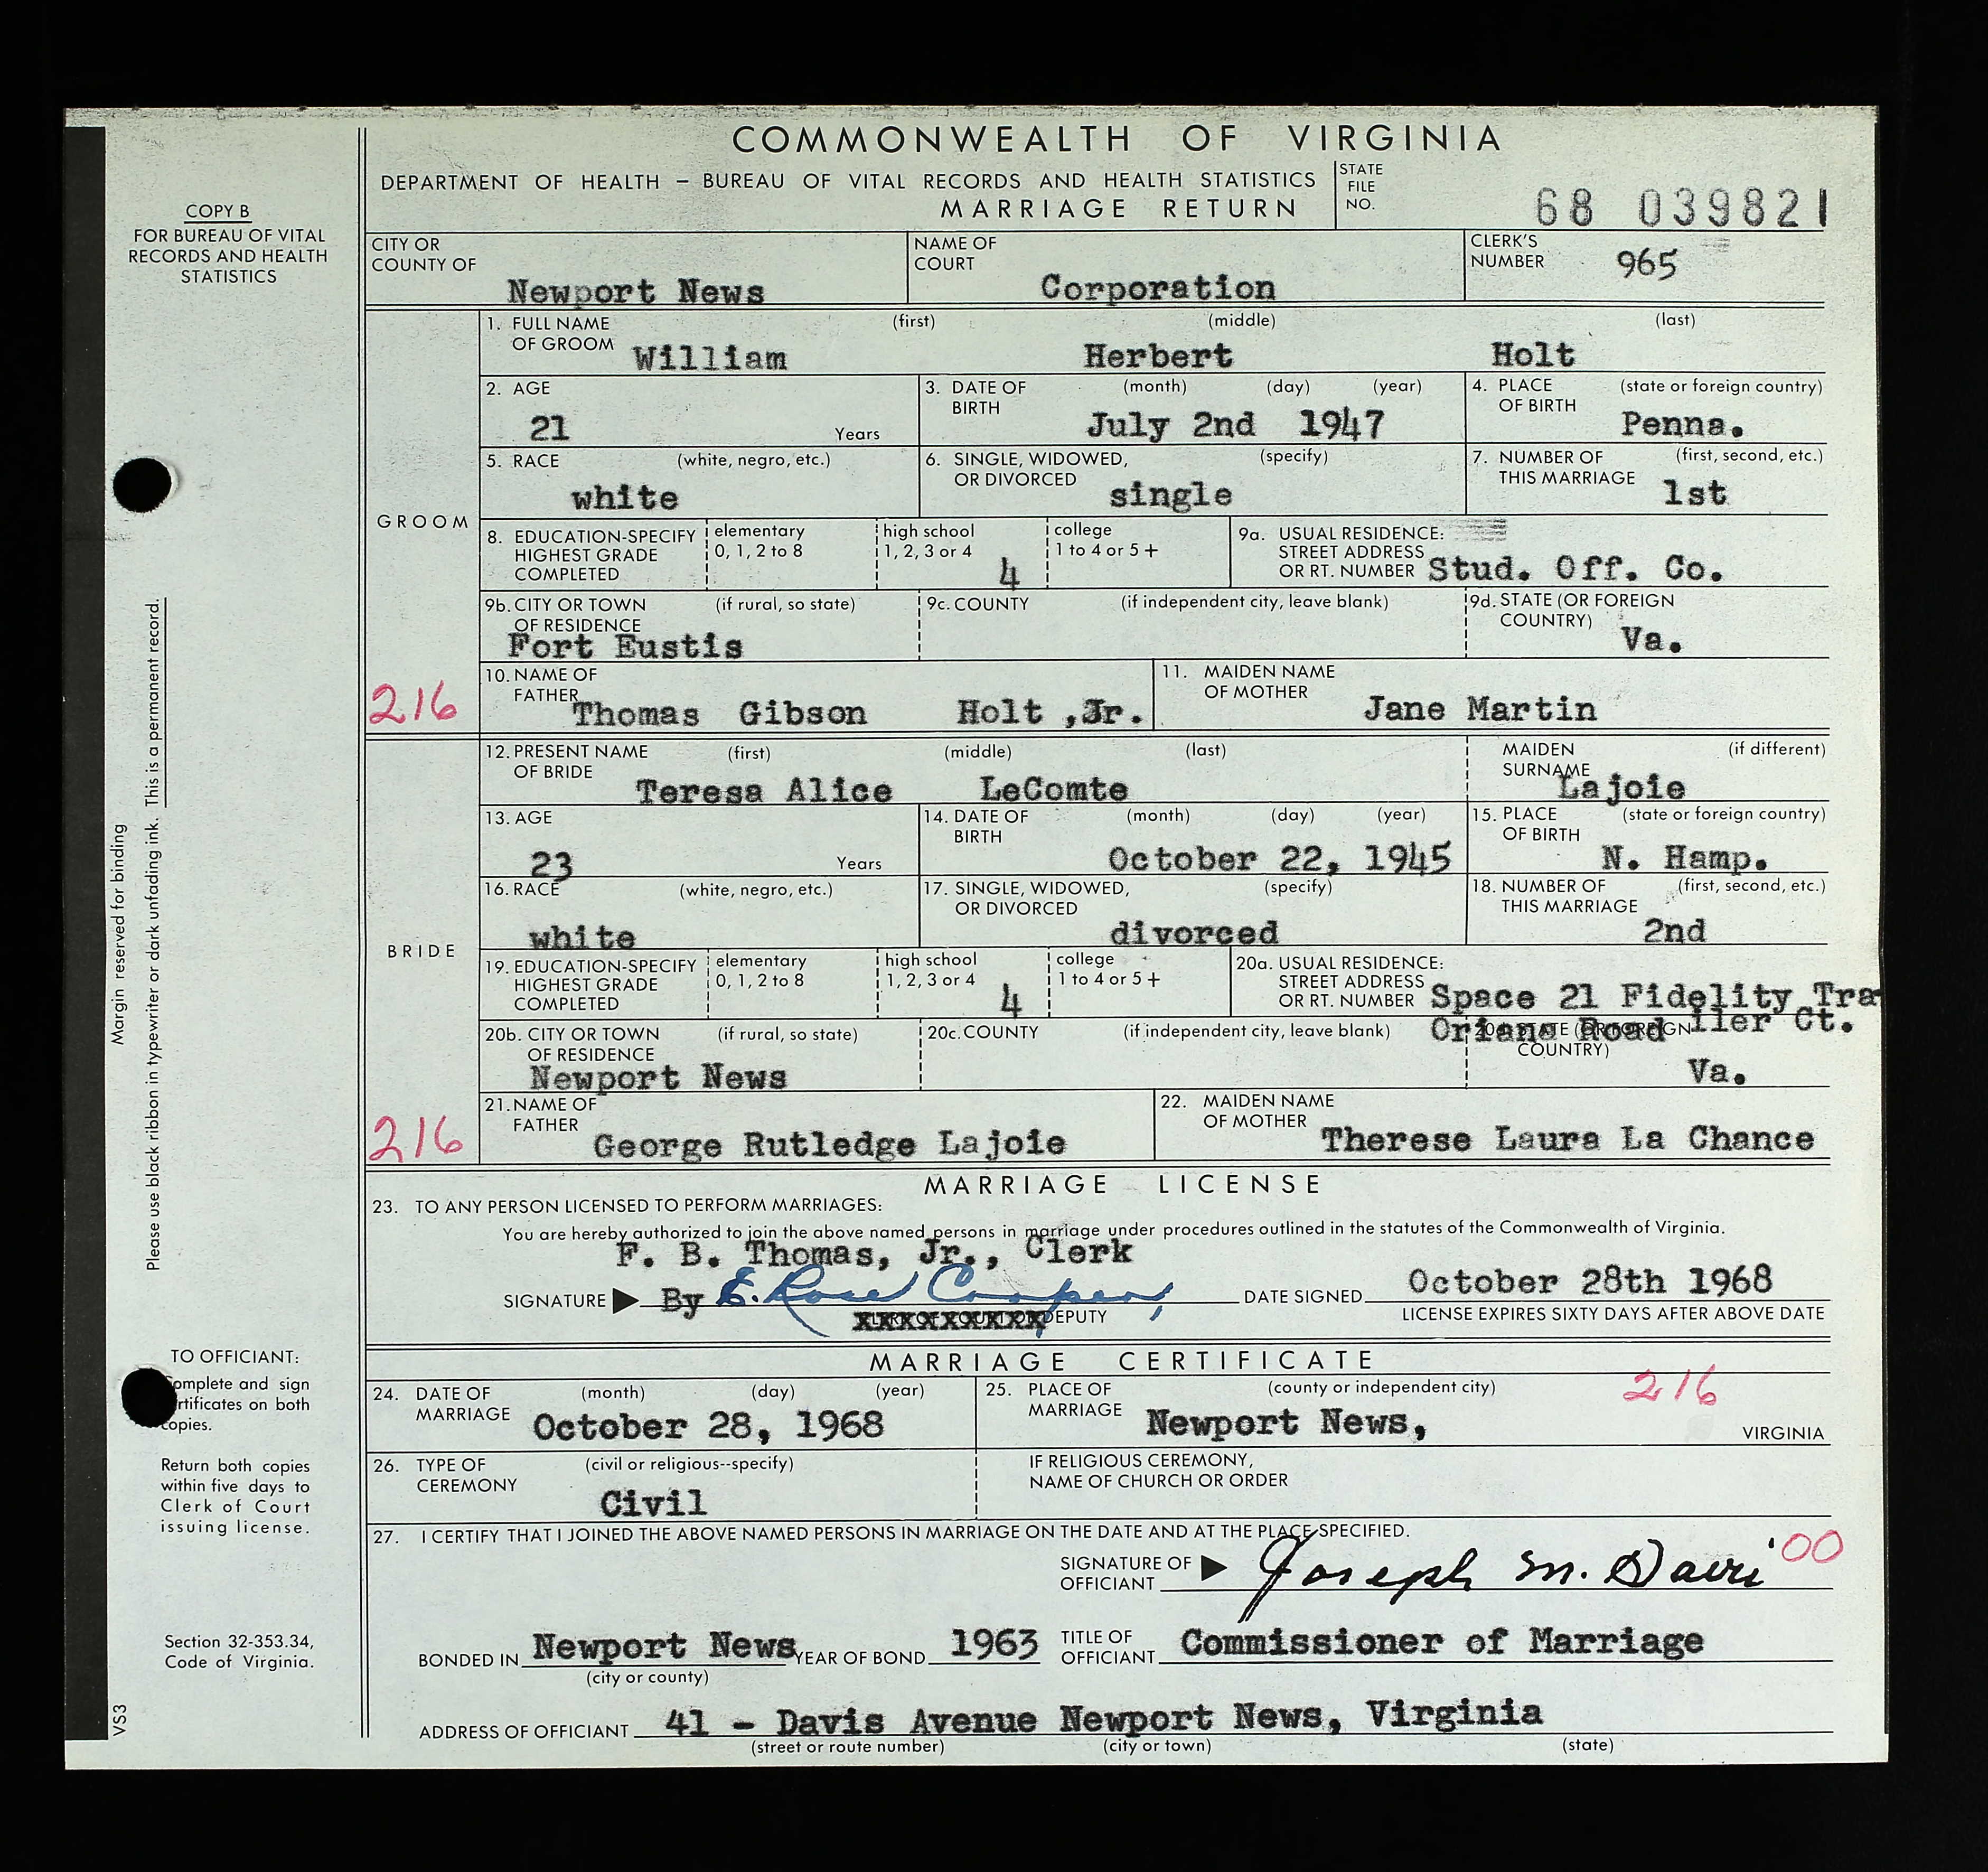 COMMONWEALTH OF VIRGINIA
DEPARTMENT OF HEALTH – BUREAU OF VITAL RECORDS AND HEALTH STATISTICS
MARRIAGE RETURN
STATE FILE NO. 68 039821
COPY B
FOR BUREAU OF VITAL
RECORDS AND HEALTH
STATISTICS
CITY OR COUNTY OF Newport News
NAME OF COURT Corporation
CLERK'S NUMBER 965
GROOM
1. FULL NAME OF GROOM (first) (middle) (last)
William Herbert Holt
2. AGE 21 Years
3. DATE OF BIRTH (month) (day) (year) July 2nd 1947
4. PLACE OF BIRTH (state or foreign country) Penna.
5. RACE (white, negro, etc.) white
6. SINGLE, WIDOWED, OR DIVORCED (specify) single
7. NUMBER OF THIS MARRIAGE (first, second, etc.) 1st
8. EDUCATION-SPECIFY HIGHEST GRADE COMPLETED elementary 0, 1, 2 to 8 high school 1, 2, 3 or 4 4 college 1 to 4 or 5 +
9a. USUAL RESIDENCE: STREET ADDRESS OR RT. NUMBER Stud. Off. Co.
9b. CITY OR TOWN OF RESIDENCE (if rural, so state) Fort Eustis
9c. COUNTY (if independent city, leave blank)
9d. STATE (OR FOREIGN COUNTRY) Va.
216
10. NAME OF FATHER Thomas Gibson Holt ,Jr.
11. MAIDEN NAME OF MOTHER Jane Martin
BRIDE
12. PRESENT NAME OF BRIDE (first) (middle) (last) Teresa Alice LeComte
MAIDEN SURNAME (if different) Lajoie
13. AGE 23 Years
14. DATE OF BIRTH (month) (day) (year) October 22, 1945
15. PLACE OF BIRTH (state or foreign country) N. Hamp.
16. RACE (white, negro, etc.) white
17. SINGLE, WIDOWED, OR DIVORCED (specify) divorced
18. NUMBER OF THIS MARRIAGE (first, second, etc.) 2nd
19. EDUCATION-SPECIFY HIGHEST GRADE COMPLETED elementary 0, 1, 2 to 8 high school 1, 2, 3 or 4 4 college 1 to 4 or 5 +
20a. USUAL RESIDENCE: STREET ADDRESS OR RT. NUMBER Space 21 Fidelity Tra
iler Ct.
Oriana Road
20b. CITY OR TOWN OF RESIDENCE (if rural, so state) Newport News
20c. COUNTY (if independent city, leave blank)
20d. STATE (OR FOREIGN COUNTRY) Va.
216
21. NAME OF FATHER George Rutledge Lajoie
22. MAIDEN NAME OF MOTHER Therese Laura La Chance
MARRIAGE LICENSE
23. TO ANY PERSON LICENSED TO PERFORM MARRIAGES:
You are hereby authorized to join the above named persons in marriage under procedures outlined in the statutes of the Commonwealth of Virginia.
F. B. Thomas, Jr., Clerk
SIGNATURE By E. Rose Cooper, DATE SIGNED October 28th 1968
DEPUTY
LICENSE EXPIRES SIXTY DAYS AFTER ABOVE DATE
MARRIAGE CERTIFICATE
24. DATE OF MARRIAGE (month) (day) (year) October 28, 1968
25. PLACE OF MARRIAGE (county or independent city) Newport News, VIRGINIA
216
26. TYPE OF CEREMONY (civil or religious--specify) Civil
IF RELIGIOUS CEREMONY, NAME OF CHURCH OR ORDER
27. I CERTIFY THAT I JOINED THE ABOVE NAMED PERSONS IN MARRIAGE ON THE DATE AND AT THE PLACE SPECIFIED.
SIGNATURE OF OFFICIANT Joseph M. Davis
00
BONDED IN Newport News YEAR OF BOND 1963 TITLE OF OFFICIANT Commissioner of Marriage
(city or county)
ADDRESS OF OFFICIANT 41 - Davis Avenue Newport News, Virginia
(street or route number) (city or town) (state)
Margin reserved for binding
Please use black ribbon in typewriter or dark unfading ink. This is a permanent record.
TO OFFICIANT:
Complete and sign
certificates on both
copies.
Return both copies
within five days to
Clerk of Court
issuing license.
Section 32-353.34,
Code of Virginia.
VS3